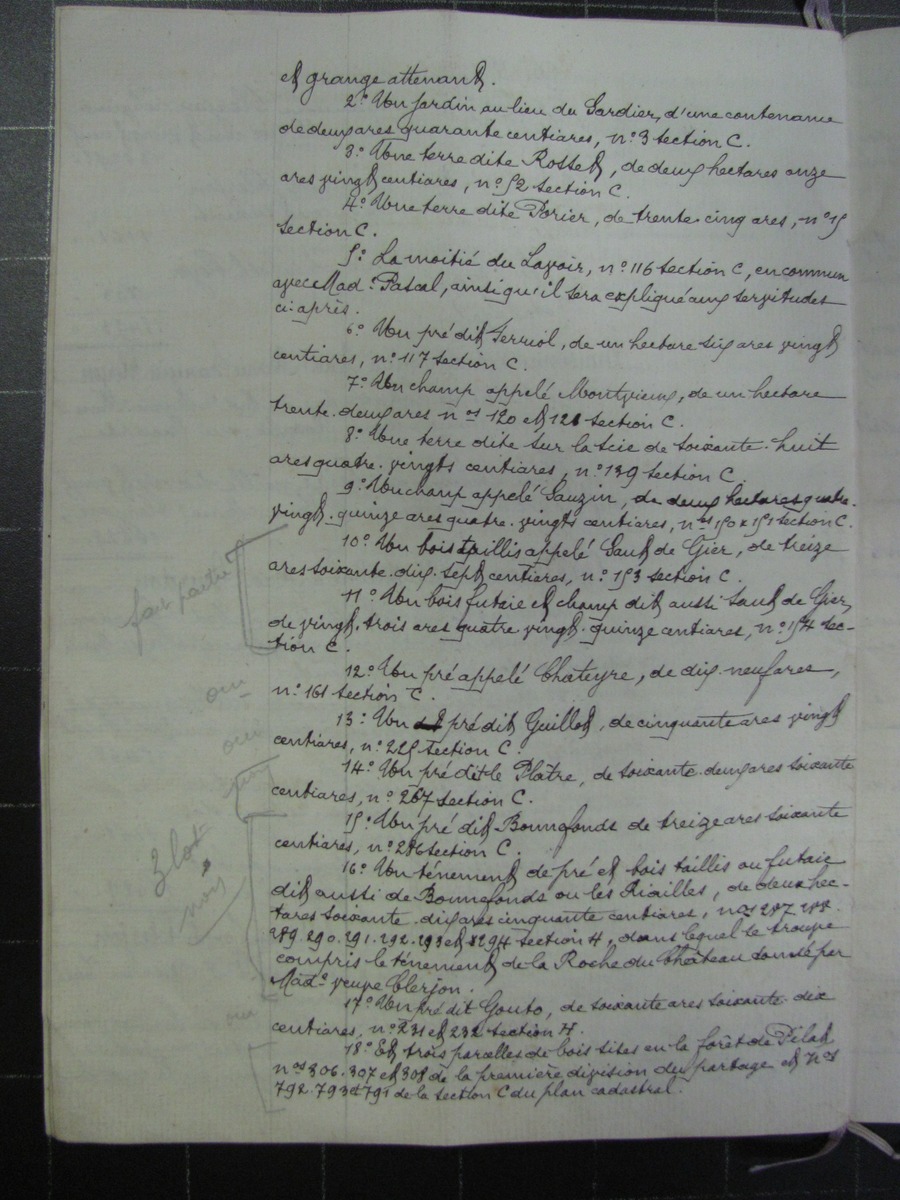 et grange attenant.
2° Un jardin au lieu du Gardier, d'une contenance
de deux ares quarante centiares, n° 3 section C.
3° Une terre dite Rosset, de deux hectares onze
ares vingt centiares, n° 52 section C.
4° Une terre dite Porier, de trente cinq ares, n° 15
section C.
5° La moitié du Lavoir, n° 116 section C, en commun
avec Mad.e Pascal, ainsi qu'il sera expliqué aux servitudes
ci-après.
6° Un pré dit, de un hectare six ares vingt
centiares, n° 117 section C.
7° Un champ appelé Montvieux, de un hectare
trente-deux ares nos 120 et 121 section C.
8° Une terre dite sur la scie de soixante-huit
ares quatre-vingts centiares, n° 139 section C.
9° Un champ appelé Sauzin, de deux hectares quatre-
vingt-quinze ares quatre-vingts centiares, nos 150 x 151 section C.
10° Un bois taillis appelé Saut de Gier, de treize
ares soixante-dix-sept centiares, n° 153 section C.
11° Un bois futaie et champ dit aussi saut de Gier,
de vingt-trois ares quatre vingt-quinze centiares, n° 154 sec-
tion C.
12° Un pré appelé Chateyre, de dix-neuf ares,
n° 161 section C.
13° Un pré dit Guillot, de cinquante ares vingt
centiares, n° 225 section C.
14° Un pré dit le Plâtre, de soixante-deux ares soixante
centiares, n° 267 section C.
15° Un pré dit Bonnefonds de treize ares soixante
centiares, n° 286 section C.
16° Un ténement de pré et bois taillis ou futaie
dit aussi de Bonnefonds ou les Riailles, de deux hec-
tares soixante-dix ares cinquante centiares, nos 287. 288.
289. 290. 291. 292. 293 et 294 section H, dans lequel se trouve
compris le ténement de la Roche du Château par
Mad.e veuve Clerjon.
17° Un pré dit Gouto, de soixante ares soixante-dix
centiares, n° 231 et 232 section H.
18° Et trois parcelles de bois sites en la forêt de Pilat
nos 306. 307 et 308 de la première division du partage et nos
792. 793 et 791 de la section C du plan cadastral.
oui
oui
3 lot
oui